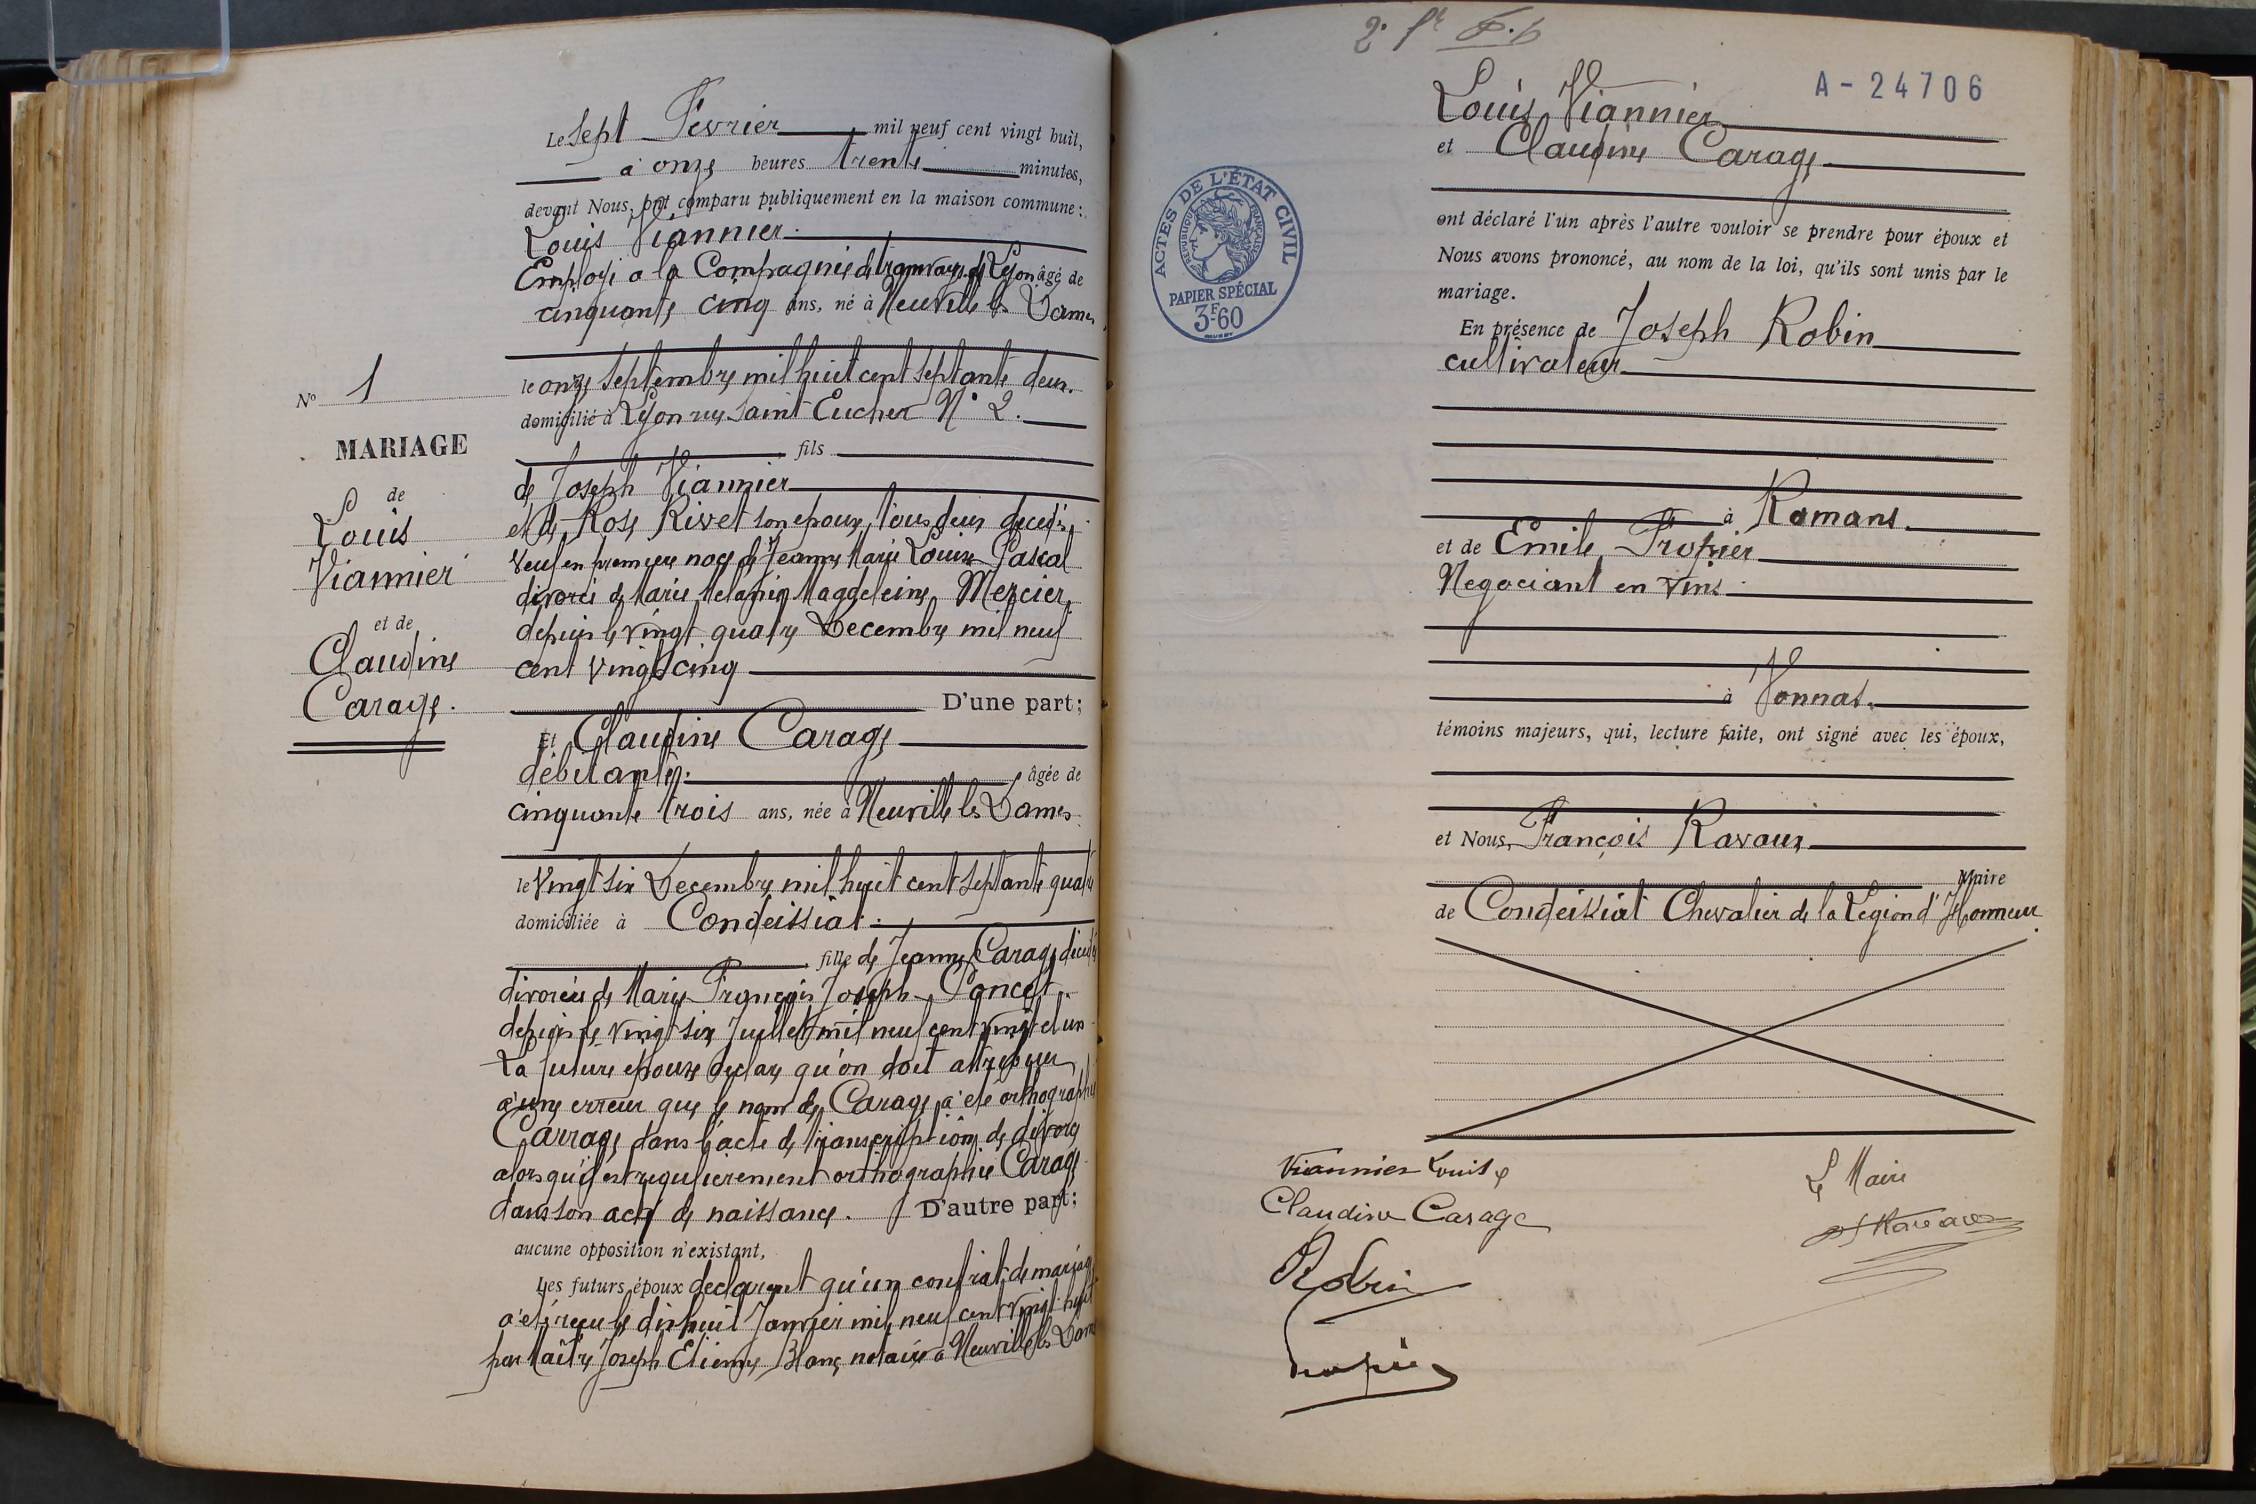 Le sept Fevrier mil neuf cent vingt huit,
à onze heures trente minutes,
devant Nous, ont comparu publiquement en la maison commune:
Louis Viannier.
Employé a la Compagnie de tramways de Lyon âgé de
cinquante cinq ans, né à Neuville les Dames
le onze Septembre mil huit cent septante deux.
domicilié à Lyon rue Saint Eucher N° 2.
fils
de Joseph Viannier
et de Rose Rivet son epouse, tous deux decedés.
Veuf en premiere noce de Jeanne Marie Louise Pascal
divorcé de Marie Melanie Magdeleine Mercier,
depuis le vingt quatre Decembre mil neuf
cent vingt cinq
D'une part;
N° 1
MARIAGE
de
Louis
Viannier
et de
Claudine
Carage.
Et Claudine Carage
débitante. âgée de
cinquante trois ans, née à Neuville les Dames
le vingt six Decembre mil huit cent septante quatre
domiciliée à Condeissiat.
fille de Jeanne Carage décedée
divorcée de Marie François Joseph Poncet.
depuis le vingt six Juillet mil neuf cent vingt et un
La future epouse declare qu'on doit attribuer
a une erreur que le nom de Carage a été orthographié
Carrage dans l'acte de transcription de divorce
alors qu'il est regulierement orthographié Carage
dans son acte de naissance. D'autre part;
aucune opposition n'existant,
Les futurs époux declarent qu'un contrat de mariage
a été reçu le dix huit Janvier mil neuf cent vingt huit
par Maître Joseph Etienne Blanc notaire à Neuville les Dames
A-24706
Louis Viannier
et Claudine Carage
ACTES DE L'ÉTAT CIVIL
RÉPUBLIQUE FRANÇAISE
PAPIER SPÉCIAL
3F60
ont déclaré l'un après l'autre vouloir se prendre pour époux et
Nous avons prononcé, au nom de la loi, qu'ils sont unis par le
mariage.
En présence de Joseph Robin
cultivateur
à Romans.
et de Emile Tropier
Negociant en vins.
à Vonnas.
témoins majeurs, qui, lecture faite, ont signé avec les époux,
et Nous, François Ravaux
Maire
de Condeissiat Chevalier de la Legion d'Honneur.
Viannier Louis
Claudine Carage
Robin
Le Maire